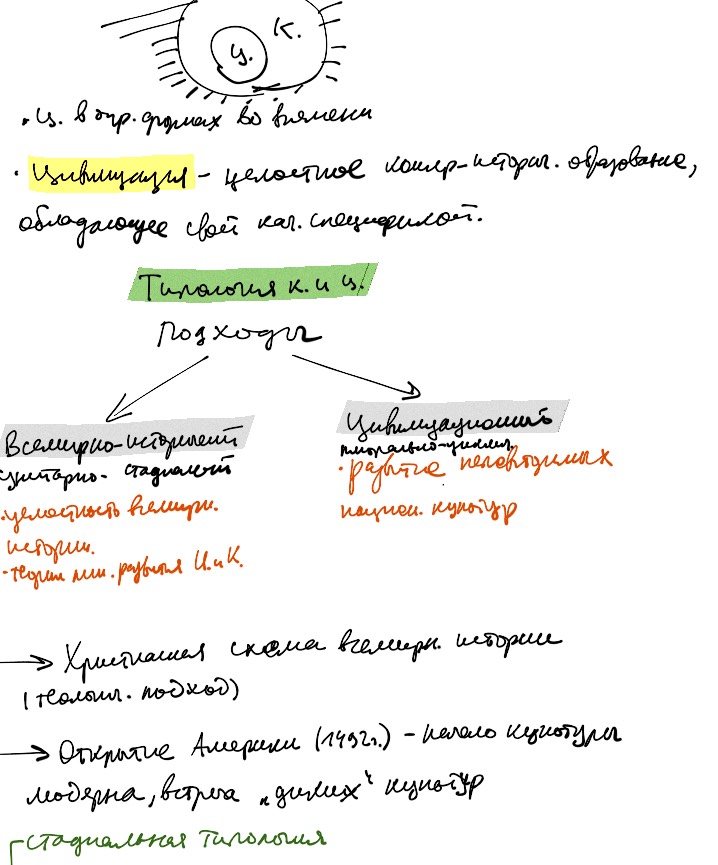 К.
Ц.
• Ц. в опр. формах во времени
• Цивилизация - целостное культ-историч. образование,
обладающее свой кач. спецификой.
Типология к. и ц.
Подходы
Всемирно-исторический
унитарно-стадиальный
• целостность всемирн.
истории.
• теории лин. развития Ц. и К.
Цивилизационный
плюрально-циклич.
• развитие неповторимых
национ. культур
→ Христианская схема всемирн. истории
(теологич. подход)
→ Открытие Америки (1492г.) - начало культуры
модерна, встреча „диких“ культур
Стадиальная типология